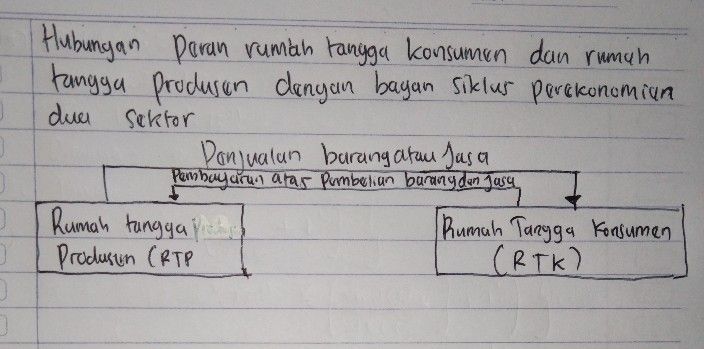 Hubungan Peran rumah tangga konsumen dan rumah
tangga Produsen dengan bagan siklus perekonomian
dua sektor
Penjualan barang atau Jasa
Pembayaran atas Pembelian barang dan Jasa
Rumah tangga
Produsen (RTP
Rumah Tangga Konsumen
(RTK)